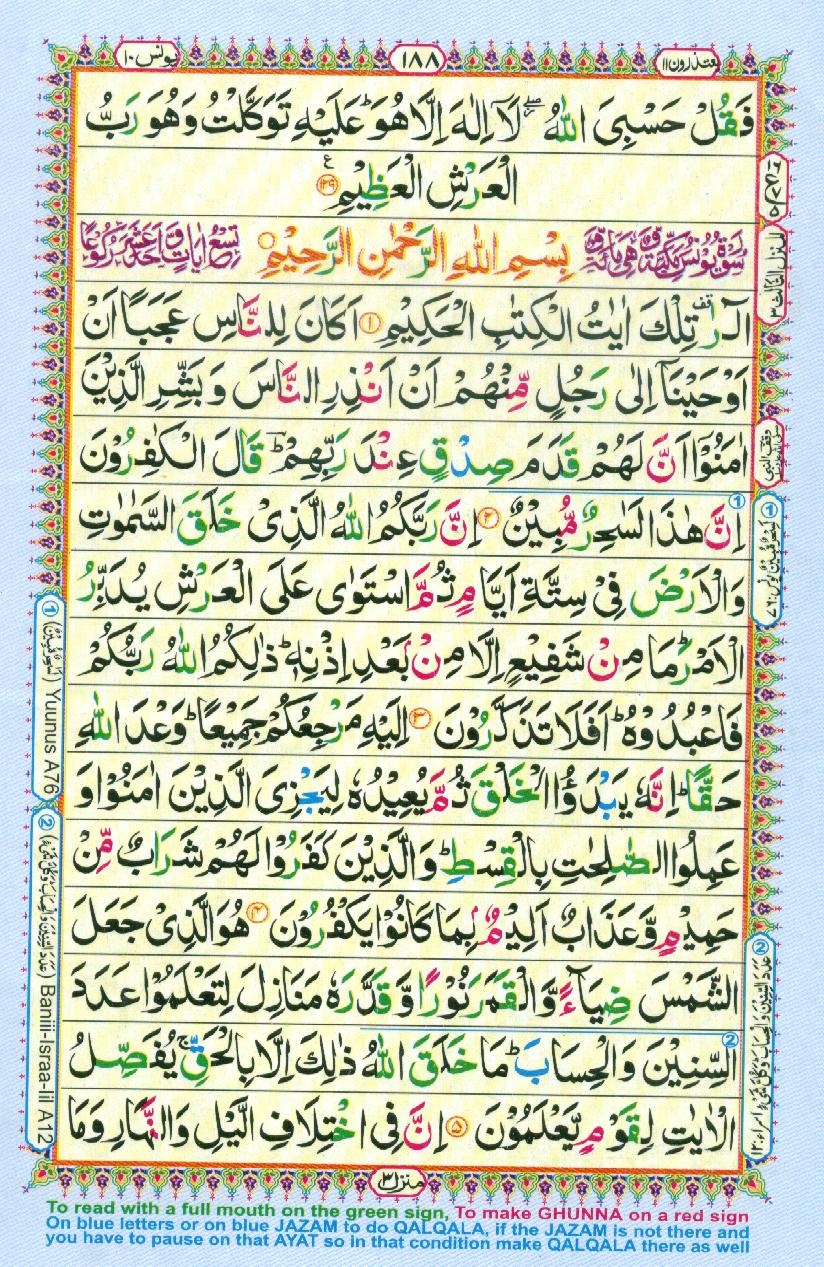 یعتذرون ۱۱
۱۸۸
یونس ۱۰
فَقُلْ حَسْبِیَ اللّٰهُ ۖ لَاۤ اِلٰهَ اِلَّا هُوَ ؕ عَلَیْهِ تَوَكَّلْتُ وَهُوَ رَبُّ
الْعَرْشِ الْعَظِیْمِ ﴿۱۲۹﴾
سُوْرَةُ یُوْنُسَ مَكِّیَّةٌ وَّهِیَ مِائَةٌ وَّ بِسْمِ اللّٰهِ الرَّحْمٰنِ الرَّحِیْمِ تِسْعُ اٰیَاتٍ وَّاَحَدَ عَشَرَ رُكُوْعًا
الٓرٰ ۫ تِلْكَ اٰیٰتُ الْكِتٰبِ الْحَكِیْمِ ﴿۱﴾ اَكَانَ لِلنَّاسِ عَجَبًا اَنْ
اَوْحَیْنَاۤ اِلٰی رَجُلٍ مِّنْهُمْ اَنْ اَنْذِرِ النَّاسَ وَ بَشِّرِ الَّذِیْنَ
اٰمَنُوْۤا اَنَّ لَهُمْ قَدَمَ صِدْقٍ عِنْدَ رَبِّهِمْ ؕ قَالَ الْكٰفِرُوْنَ
اِنَّ هٰذَا لَسٰحِرٌ مُّبِیْنٌ ﴿۲﴾ اِنَّ رَبَّكُمُ اللّٰهُ الَّذِیْ خَلَقَ السَّمٰوٰتِ
وَالْاَرْضَ فِیْ سِتَّةِ اَیَّامٍ ثُمَّ اسْتَوٰی عَلَی الْعَرْشِ یُدَبِّرُ
الْاَمْرَ ؕ مَا مِنْ شَفِیْعٍ اِلَّا مِنْۢ بَعْدِ اِذْنِهٖ ؕ ذٰلِكُمُ اللّٰهُ رَبُّكُمْ
فَاعْبُدُوْهُ ؕ اَفَلَا تَذَكَّرُوْنَ ﴿۳﴾ اِلَیْهِ مَرْجِعُكُمْ جَمِیْعًا ؕ وَعْدَ اللّٰهِ
حَقًّا ؕ اِنَّهٗ یَبْدَؤُا الْخَلْقَ ثُمَّ یُعِیْدُهٗ لِیَجْزِیَ الَّذِیْنَ اٰمَنُوْا وَ
عَمِلُوا الصّٰلِحٰتِ بِالْقِسْطِ ؕ وَالَّذِیْنَ كَفَرُوْا لَهُمْ شَرَابٌ مِّنْ
حَمِیْمٍ وَّعَذَابٌ اَلِیْمٌۢ بِمَا كَانُوْا یَكْفُرُوْنَ ﴿۴﴾ هُوَ الَّذِیْ جَعَلَ
الشَّمْسَ ضِیَآءً وَّالْقَمَرَ نُوْرًا وَّقَدَّرَهٗ مَنَازِلَ لِتَعْلَمُوْا عَدَدَ
السِّنِیْنَ وَالْحِسَابَ ؕ مَا خَلَقَ اللّٰهُ ذٰلِكَ اِلَّا بِالْحَقِّ ۚ یُفَصِّلُ
الْاٰیٰتِ لِقَوْمٍ یَّعْلَمُوْنَ ﴿۵﴾ اِنَّ فِی اخْتِلَافِ الَّیْلِ وَالنَّهَارِ وَمَا
المنزل الثالث ۳
① (لَسِحْرٌ مُّبِیْنٌ) Yuumus A76
② (عَدَدَ السِّنِیْنَ وَالْحِسَابَ وَكُلَّ شَیْءٍ) Baniii-Israa-Iil A12
منزل ۳
To read with a full mouth on the green sign, To make GHUNNA on a red sign
On blue letters or on blue JAZAM to do QALQALA, if the JAZAM is not there and
you have to pause on that AYAT so in that condition make QALQALA there as well